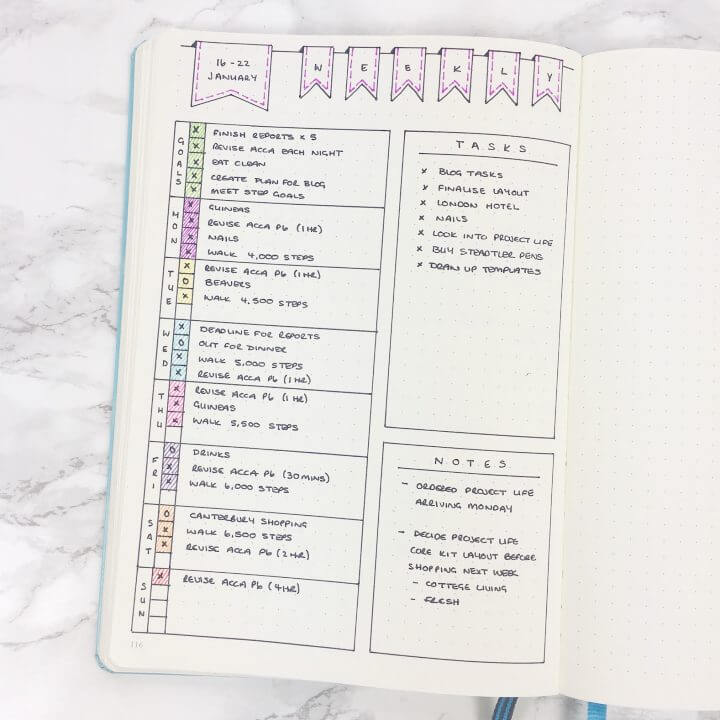 16 - 22
JANUARY
W E E K L Y
GOALS
x FINISH REPORTS x 5
x REVISE ACCA EACH NIGHT
x EAT CLEAN
x CREATE PLAN FOR BLOG
x MEET STEP GOALS
MON
x GUINEAS
x REVISE ACCA P6 (1HR)
x NAILS
x WALK 4,000 STEPS
TUE
x REVISE ACCA P6 (1HR)
O BEAVERS
x WALK 4,500 STEPS
WED
x DEADLINE FOR REPORTS
O OUT FOR DINNER
x WALK 5,000 STEPS
x REVISE ACCA P6 (1HR)
THU
x REVISE ACCA P6 (1HR)
x GUINEAS
x WALK 5,500 STEPS
FRI
O DRINKS
x REVISE ACCA P6 (30MINS)
x WALK 6,000 STEPS
SAT
O CANTERBURY SHOPPING
x WALK 6,500 STEPS
x REVISE ACCA P6 (2HR)
SUN
x REVISE ACCA P6 (4HR)
116
TASKS
x BLOG TASKS
x FINALISE LAYOUT
x LONDON HOTEL
x NAILS
x LOOK INTO PROJECT LIFE
x BUY STEADTLER PENS
x DRAW UP TEMPLATES
NOTES
- ORDERED PROJECT LIFE
ARRIVING MONDAY
- DECIDE PROJECT LIFE
CORE KIT LAYOUT BEFORE
SHOPPING NEXT WEEK
- COTTEGE LIVING
- FRESH